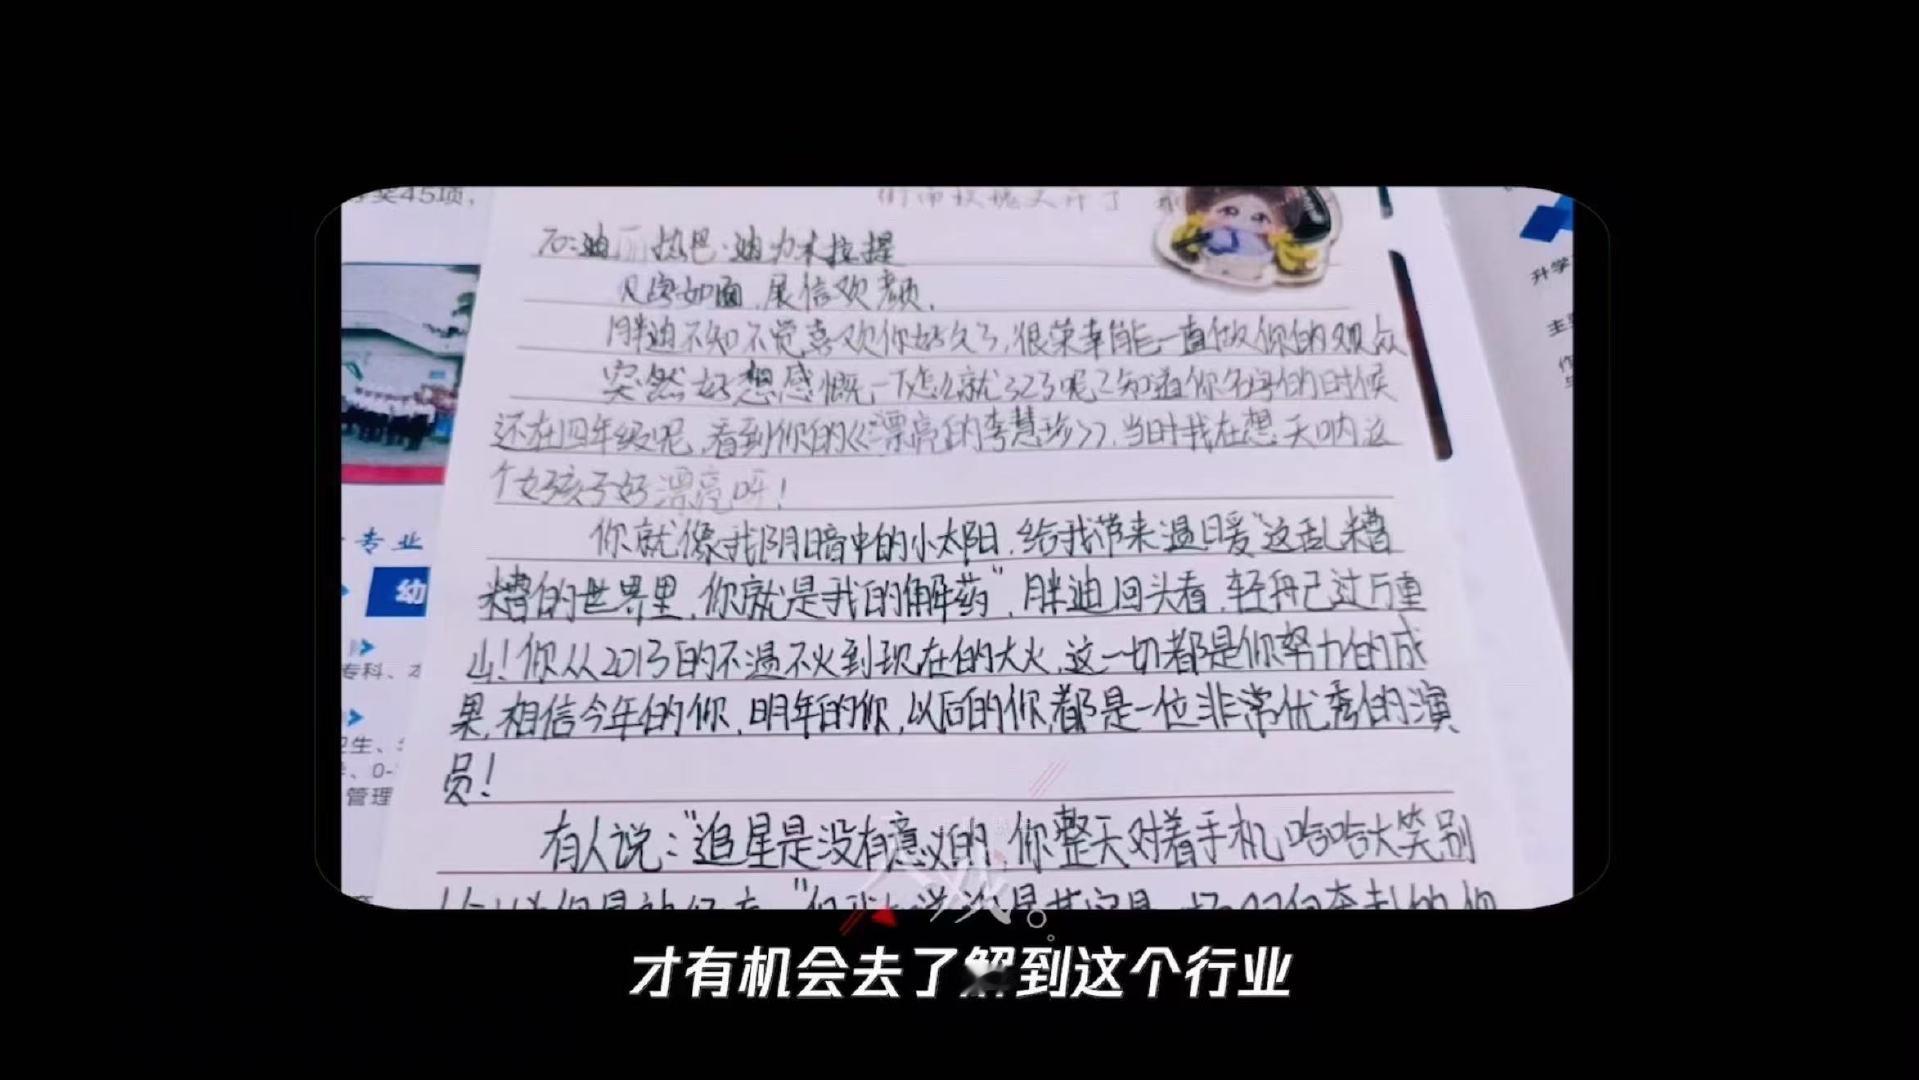 奖45项,
升学
To:迪丽热巴·迪力木拉提
见字如面,展信欢颜.
胖迪不知不觉喜欢你好久了,很荣幸能一直做你的观众
突然好想感慨,一下怎么就323了呢?知道你名字的时候
还在四年级呢,看到你的《漂亮的李慧珍》,当时我在想天呐这
个女孩子好漂亮呀!
你就像我阴暗中的小太阳,给我带来温暖"这乱糟
糟的世界里,你就是我的解药",胖迪回头看,轻舟已过万重
山!你从2013的不温不火到现在的大火,这一切都是你努力的成
果,相信今年的你,明年的你,以后的你,都是一位非常优秀的演
员!
有人说:"追星是没有意义的,你整天对着手机哈哈大笑别
专业
幼
专科、
卫生、
0-
管理
才有机会去了解到这个行业